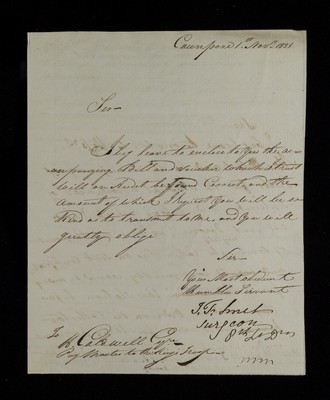 Cawnpore 1st Novr. 1821
Sir
I beg leave to enclose to you the ac-
companying Bill and Voucher which I trust
will on Audit be found Correct, and the
amount of which I request you will be so
kind as to transmit to me and you will
greatly oblige
Sir
Your Most obedient
Humble Servant
Surgeon
8th Lt Drs
To
K. Caldwell Esqr
Pay Master to the Kings Troops